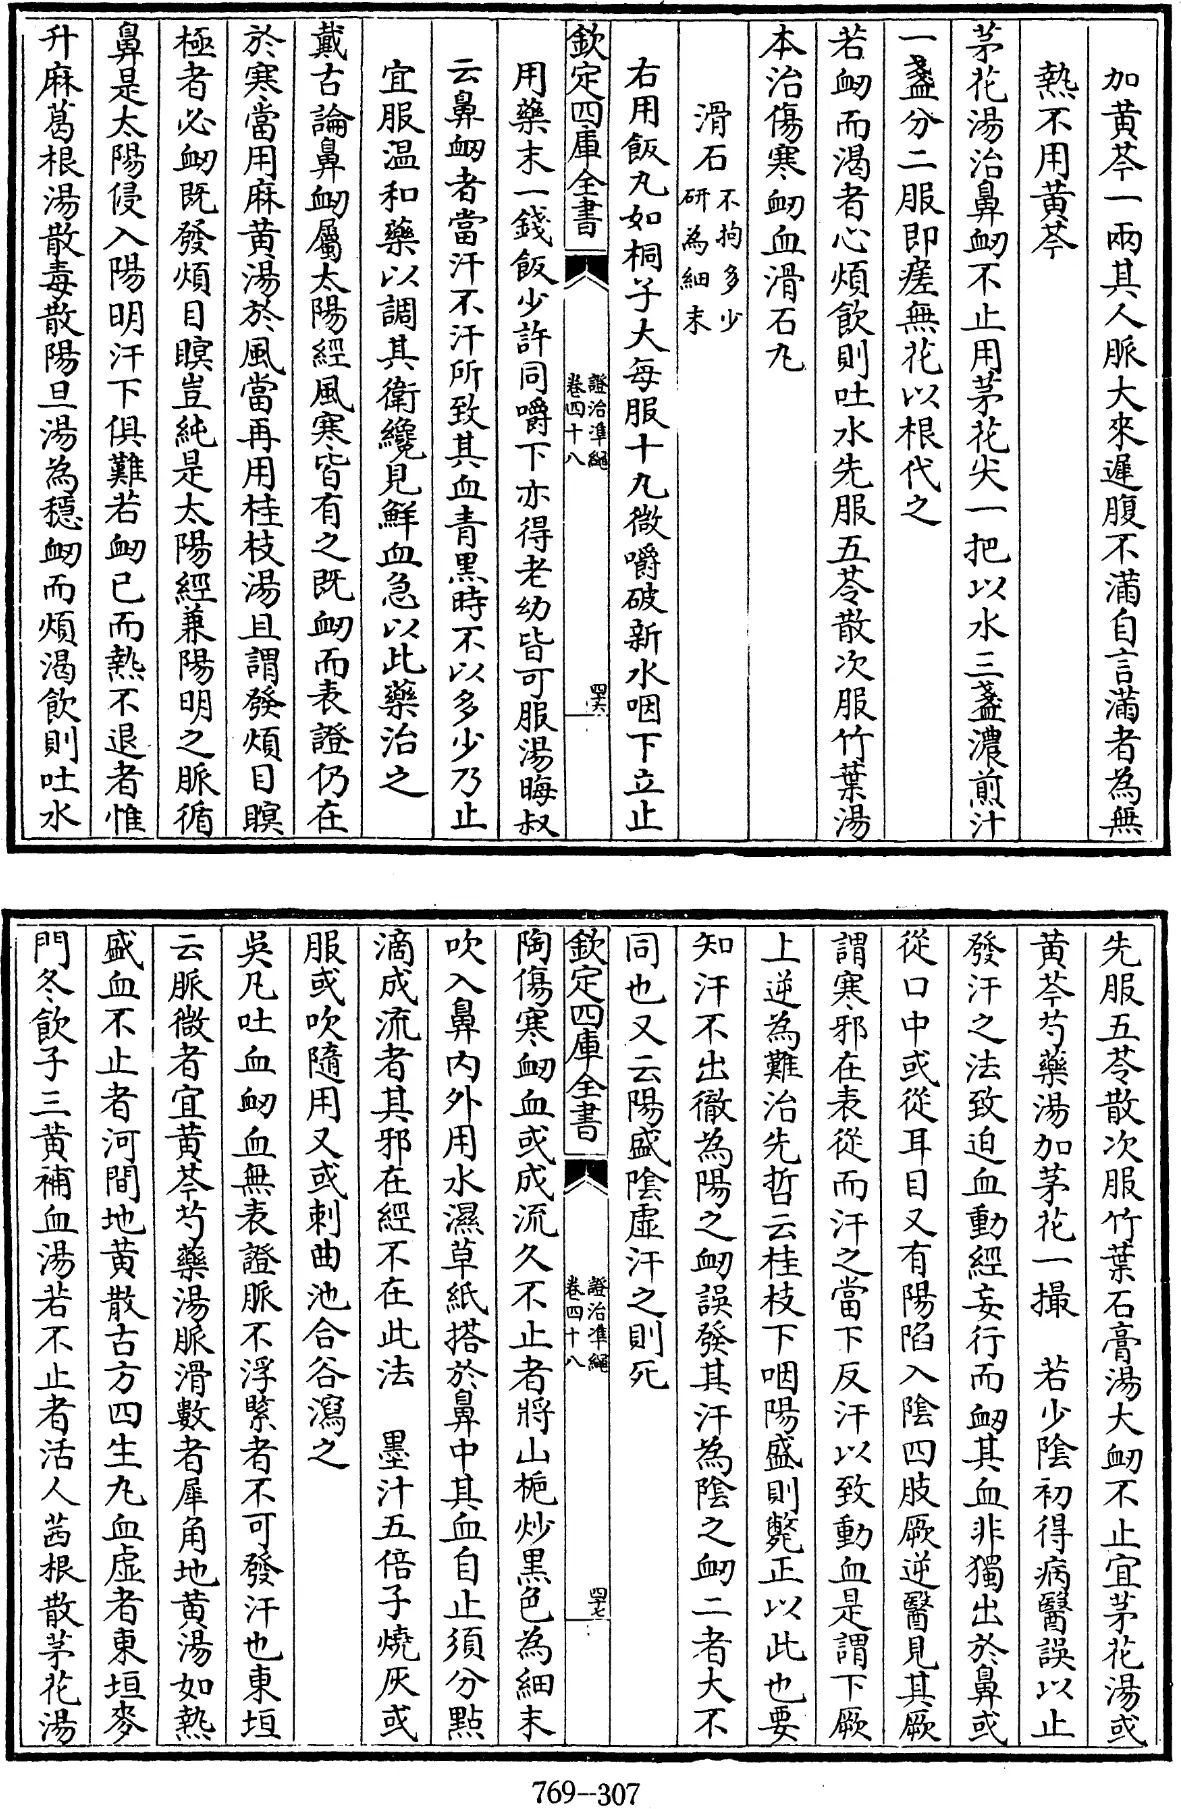 加黄芩一兩其人脈大來遲腹不滿自言滿者為無
熱不用黄芩
茅花湯治鼻衂不止用茅花尖一把以水三盞濃煎汁
一盞分二服即瘥無花以根代之
若衂而渴者心煩飲則吐水先服五苓散次服竹葉湯
本治傷寒衂血滑石丸
滑石不拘多少
研為細末
右用飯丸如桐子大每服十丸微嚼破新水咽下立止
欽定四庫全書
證治準繩
卷四十八
四十六
用藥末一錢飯少許同嚼下亦得老幼皆可服湯晦叔
云鼻衂者當汗不汗所致其血青黑時不以多少乃止
宜服温和藥以調其衛纔見鮮血急以此藥治之
戴古論鼻衂屬太陽經風寒皆有之既衂而表證仍在
於寒當用麻黄湯於風當再用桂枝湯且謂發煩目瞑
極者必衂既發煩目瞑豈純是太陽經兼陽明之脈循
鼻是太陽侵入陽明汗下俱難若衂已而熱不退者惟
升麻葛根湯散毒散陽旦湯為穩衂而煩渴飲則吐水
先服五苓散次服竹葉石膏湯大衂不止宜茅花湯或
黄芩芍藥湯加茅花一撮　若少陰初得病醫誤以止
發汗之法致迫血動經妄行而衂其血非獨出於鼻或
從口中或從耳目又有陽陷入陰四肢厥逆醫見其厥
謂寒邪在表從而汗之當下反汗以致動血是謂下厥
上逆為難治先哲云桂枝下咽陽盛則斃正以此也要
知汗不出徹為陽之衂誤發其汗為陰之衂二者大不
同也又云陽盛陰虛汗之則死
欽定四庫全書
證治準繩
卷四十八
四十七
陶傷寒衂血或成流久不止者將山梔炒黑色為細末
吹入鼻内外用水濕草紙搭於鼻中其血自止須分點
滴成流者其邪在經不在此法　墨汁五倍子燒灰或
服或吹隨用又或刺曲池合谷瀉之
吳凡吐血衂血無表證脈不浮緊者不可發汗也東垣
云脈微者宜黄芩芍藥湯脈滑數者犀角地黄湯如熱
盛血不止者河間地黄散古方四生丸血虛者東垣麥
門冬飲子三黄補血湯若不止者活人茜根散茅花湯
769--307